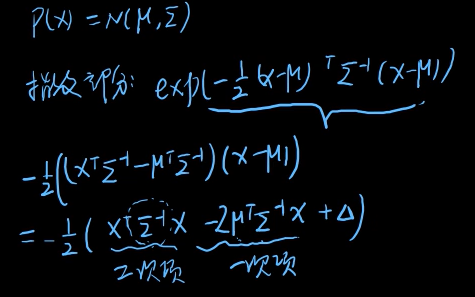 P(x) = N(μ, Σ)
指数部分: exp(-½(x-μ)ᵀΣ⁻¹(x-μ))
-½((xᵀΣ⁻¹-μᵀΣ⁻¹)(x-μ))
= -½(xᵀΣ⁻¹x -2μᵀΣ⁻¹x + Δ)
二次项 一次项